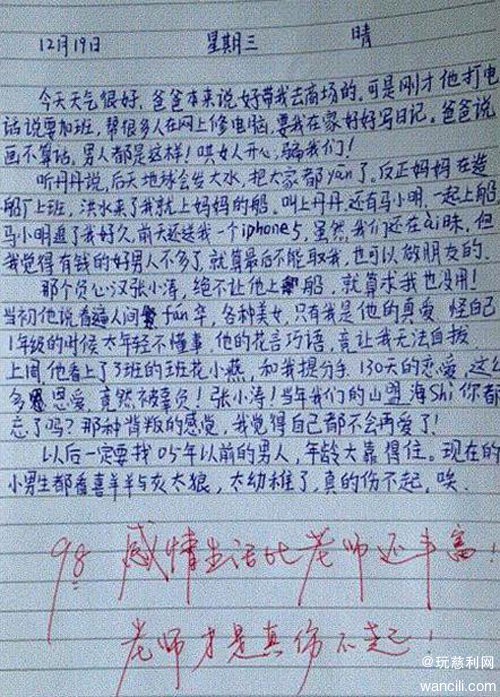 12月19日 星期三 晴
今天天气很好，爸爸本来说好带我去商场的。可是刚才他打电
话说要加班，帮很多人在网上修电脑，要我在家好好写日记。爸爸说
画不算话。男人都是这样！哄女人开心，骗我们！
听丹丹说，后天地球会发大水，把大家都yān了。反正妈妈在造
船厂上班，洪水来了我就上妈妈的船。叫上丹丹，还有马小明，一起上船
马小明追了我好久，前天还送我一个iphone5，虽然我们还在ài昧，但
我觉得有钱的好男人不多了，就算最后不能取我，也可以做朋友的。
那个负心汉张小涛，绝不让他上船，就算求我也没用！
当初他说看遍人间fán华，各种美女，只有我是他的真爱 怪自己
1年级的时候太年轻不懂事，他的花言巧语，竟让我无法自拔
上周他看上了3班的班花小燕，和我提分手，130天的恋爱，这么
多恩爱，竟然被辜负！张小涛！当年我们的山盟海Shi你都
忘了吗？那种背叛的感觉，我觉得自己都不会再爱了！
以后一定要找05年以前的男人，年龄大靠得住。现在的
小男生都看喜羊羊与灰太狼，太幼稚了，真的伤不起，唉。
98 感情生活比老师还丰富！
老师才是真伤不起！
@玩慈利网
wancili.com